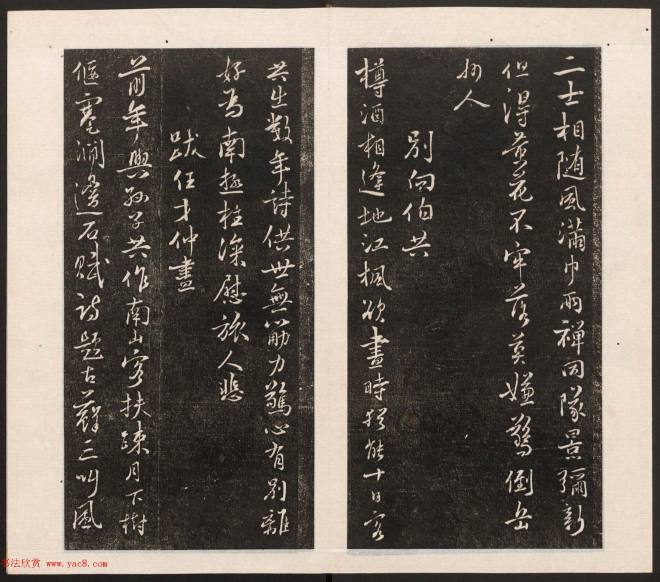 二士相随風滿巾雨禅回隊景彌新
但得黃花不牢落莫嫌驚倒岳
州人
別向伯共
樽酒相逢地江楓欲盡時猶能十日客
共出數年詩供世無筋力驚心有別離
好為南極柱深慰旅人悲
跋任才仲畫
前年與孫子共作南山客扶疎月下樹
偃蹇澗邊石賦詩題古蘚三叫風
书法欣赏 www.yac8.com